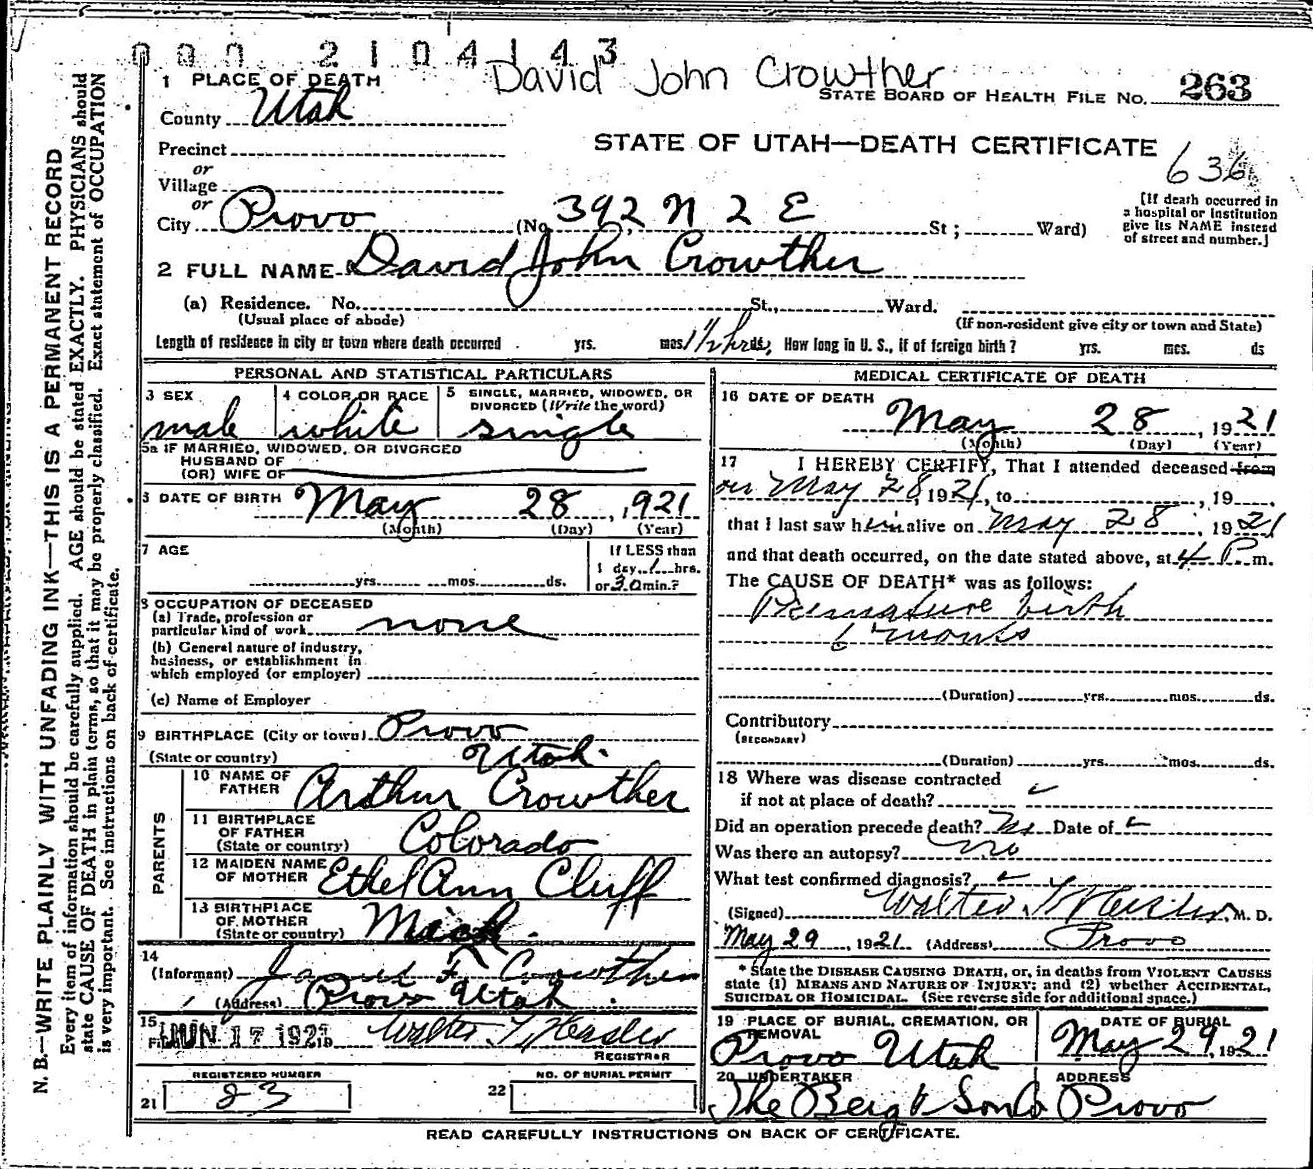 000 2104143
David John Crowther
1 PLACE OF DEATH
STATE BOARD OF HEALTH FILE No. 263
County Utah
STATE OF UTAH—DEATH CERTIFICATE
636
Precinct
or
Village
or
City Provo (No. 392 N 2 E St; Ward)
[If death occurred in
a hospital or institution
give its NAME instead
of street and number.]
2 FULL NAME David John Crowther
(a) Residence. No. St., Ward.
(Usual place of abode)
(If non-resident give city or town and State)
Length of residence in city or town where death occurred yrs. mos. 1 1/2 hrs ds, How long in U. S., if of foreign birth? yrs. mos. ds
PERSONAL AND STATISTICAL PARTICULARS
3 SEX
male
4 COLOR OR RACE
white
5 SINGLE, MARRIED, WIDOWED, OR
DIVORCED (Write the word)
single
5a IF MARRIED, WIDOWED, OR DIVORCED
HUSBAND OF
(OR) WIFE OF
6 DATE OF BIRTH May 28, 1921
(Month) (Day) (Year)
7 AGE
yrs. mos. ds.
If LESS than
1 day, 1 hrs.
or 30 min.?
8 OCCUPATION OF DECEASED
(a) Trade, profession or
particular kind of work none
(b) General nature of industry,
business, or establishment in
which employed (or employer)
(c) Name of Employer
9 BIRTHPLACE (City or town) Provo
(State or country) Utah.
PARENTS
10 NAME OF
FATHER Arthur Crowther
11 BIRTHPLACE
OF FATHER
(State or country) Colorado
12 MAIDEN NAME
OF MOTHER Ethel Ann Cluff
13 BIRTHPLACE
OF MOTHER
(State or country)
14
(Informant) F. Crowther
(Address) Provo Utah
15
Filed JUN 17 1921
REGISTRAR
REGISTERED NUMBER
21 83
NO. OF BURIAL PERMIT
22
MEDICAL CERTIFICATE OF DEATH
16 DATE OF DEATH
May 28, 1921
(Month) (Day) (Year)
17 I HEREBY CERTIFY, That I attended deceased from
on May 28, 1921, to , 19 ,
that I last saw him alive on May 28 1921
and that death occurred, on the date stated above, at 4 P m.
The CAUSE OF DEATH* was as follows:
Premature birth
6 months
(Duration) yrs. mos. ds.
Contributory
(SECONDARY)
(Duration) yrs. mos. ds.
18 Where was disease contracted
if not at place of death?
Did an operation precede death? No Date of
Was there an autopsy? no
What test confirmed diagnosis?
(Signed) Walter T , M. D.
May 29, 1921 (Address) Provo
* State the DISEASE CAUSING DEATH, or, in deaths from VIOLENT CAUSES
state (1) MEANS AND NATURE OF INJURY; and (2) whether ACCIDENTAL,
SUICIDAL or HOMICIDAL. (See reverse side for additional space.)
19 PLACE OF BURIAL, CREMATION, OR
REMOVAL
Provo Utah
DATE OF BURIAL
May 29, 1921
20 UNDERTAKER
The Berg & Son Co
ADDRESS
Provo
READ CAREFULLY INSTRUCTIONS ON BACK OF CERTIFICATE.
N. B.—WRITE PLAINLY WITH UNFADING INK—THIS IS A PERMANENT RECORD
Every item of information should be carefully supplied. AGE should be stated EXACTLY. PHYSICIANS should
state CAUSE OF DEATH in plain terms, so that it may be properly classified. Exact statement of OCCUPATION
is very important. See instructions on back of certificate.